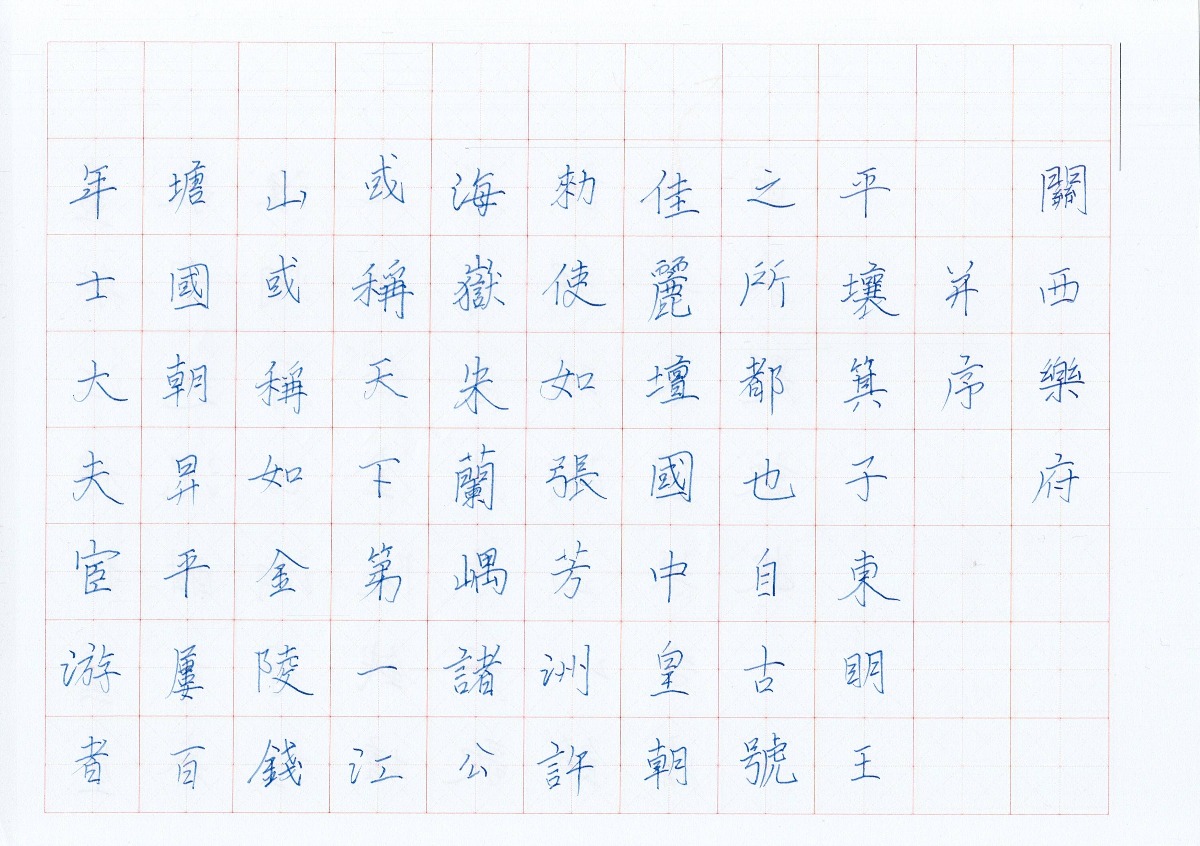 關西樂府
并序
平壤箕子東明王
之所都也自古號
佳麗壇國中皇朝
勑使如張芳洲許
海嶽朱蘭嵎諸公
或稱天下第一江
山或稱如金陵錢
塘國朝昇平屢百
年士大夫宦游者